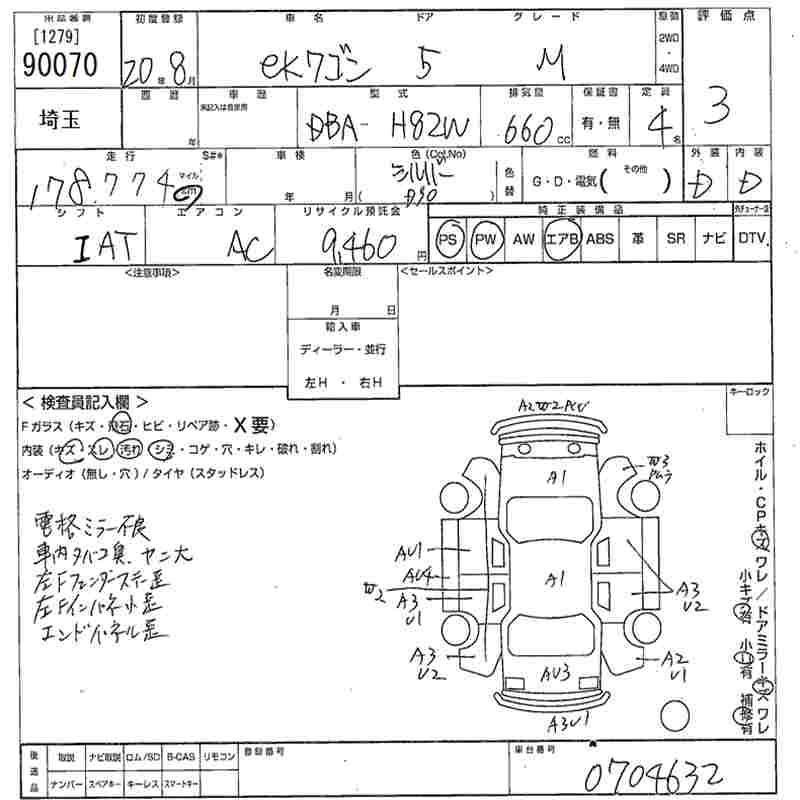 出品番号 初度登録 車名 ドア グレード 駆動 評価点
[1279]
90070 20年8月 ekワゴン 5 M 2WD・4WD 3
埼玉 西暦 年 車歴 未記入は自家用 型式 DBA-H82W 排気量 660cc 保証書 有・無 定員 4名
走行 178,774 マイル km S#* 車検 年 月 色(Col,No) シルバー 色替 燃料 G・D・電気(その他 ) 外装 D 内装 D
シフト IAT エアコン AC リサイクル預託金 9,460円 純正装備品 PS PW AW エアB ABS 革 SR ナビ DTV
<注意事項> 名変期限 月 日 <セールスポイント>
輸入車
ディーラー・並行
左H ・ 右H
キーロック
< 検査員記入欄 >
Fガラス(キズ・飛石・ヒビ・リペア跡・X要)
内装(キズ・スレ・汚れ・シミ・コゲ・穴・キレ・破れ・割れ)
オーディオ(無し・穴)/タイヤ(スタッドレス)
電格ミラー不良
車内タバコ臭、ヤニ大
左Fフェンダーステー歪
左Fインパネ小歪
エンドパネル歪
A1
A1
AU1
AU4
W2
A3
U1
A3
U2
A3
U2
A2
U1
AU3
A3U1
W3
ホイル・CPキズワレ/ドアミラーキズワレ
小キズ有 小凹有 補修有
後送品 取説 ナビ取説 ロム/SD B-CAS リモコン 登録番号 車台番号
ナンバー スペアキー キーレス スマートキー 0704632